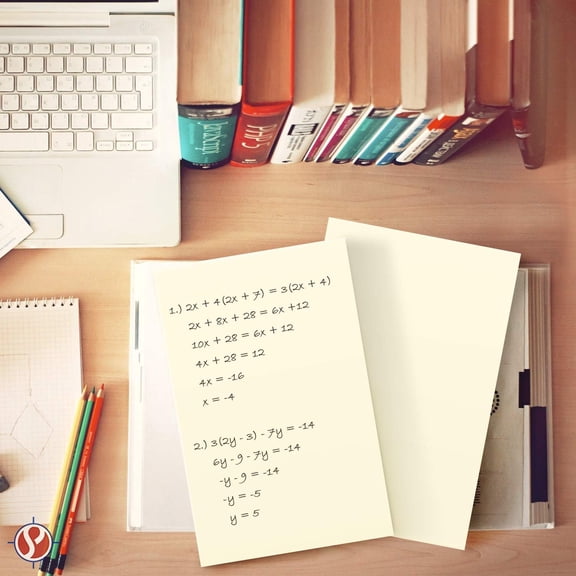 1.) 2x + 4(2x + 7) = 3(2x + 4)
2x + 8x + 28 = 6x +12
10x + 28 = 6x + 12
4x + 28 = 12
4x = -16
x = -4
2.) 3(2y - 3) - 7y = -14
6y - 9 - 7y = -14
-y - 9 = -14
-y = -5
y = 5